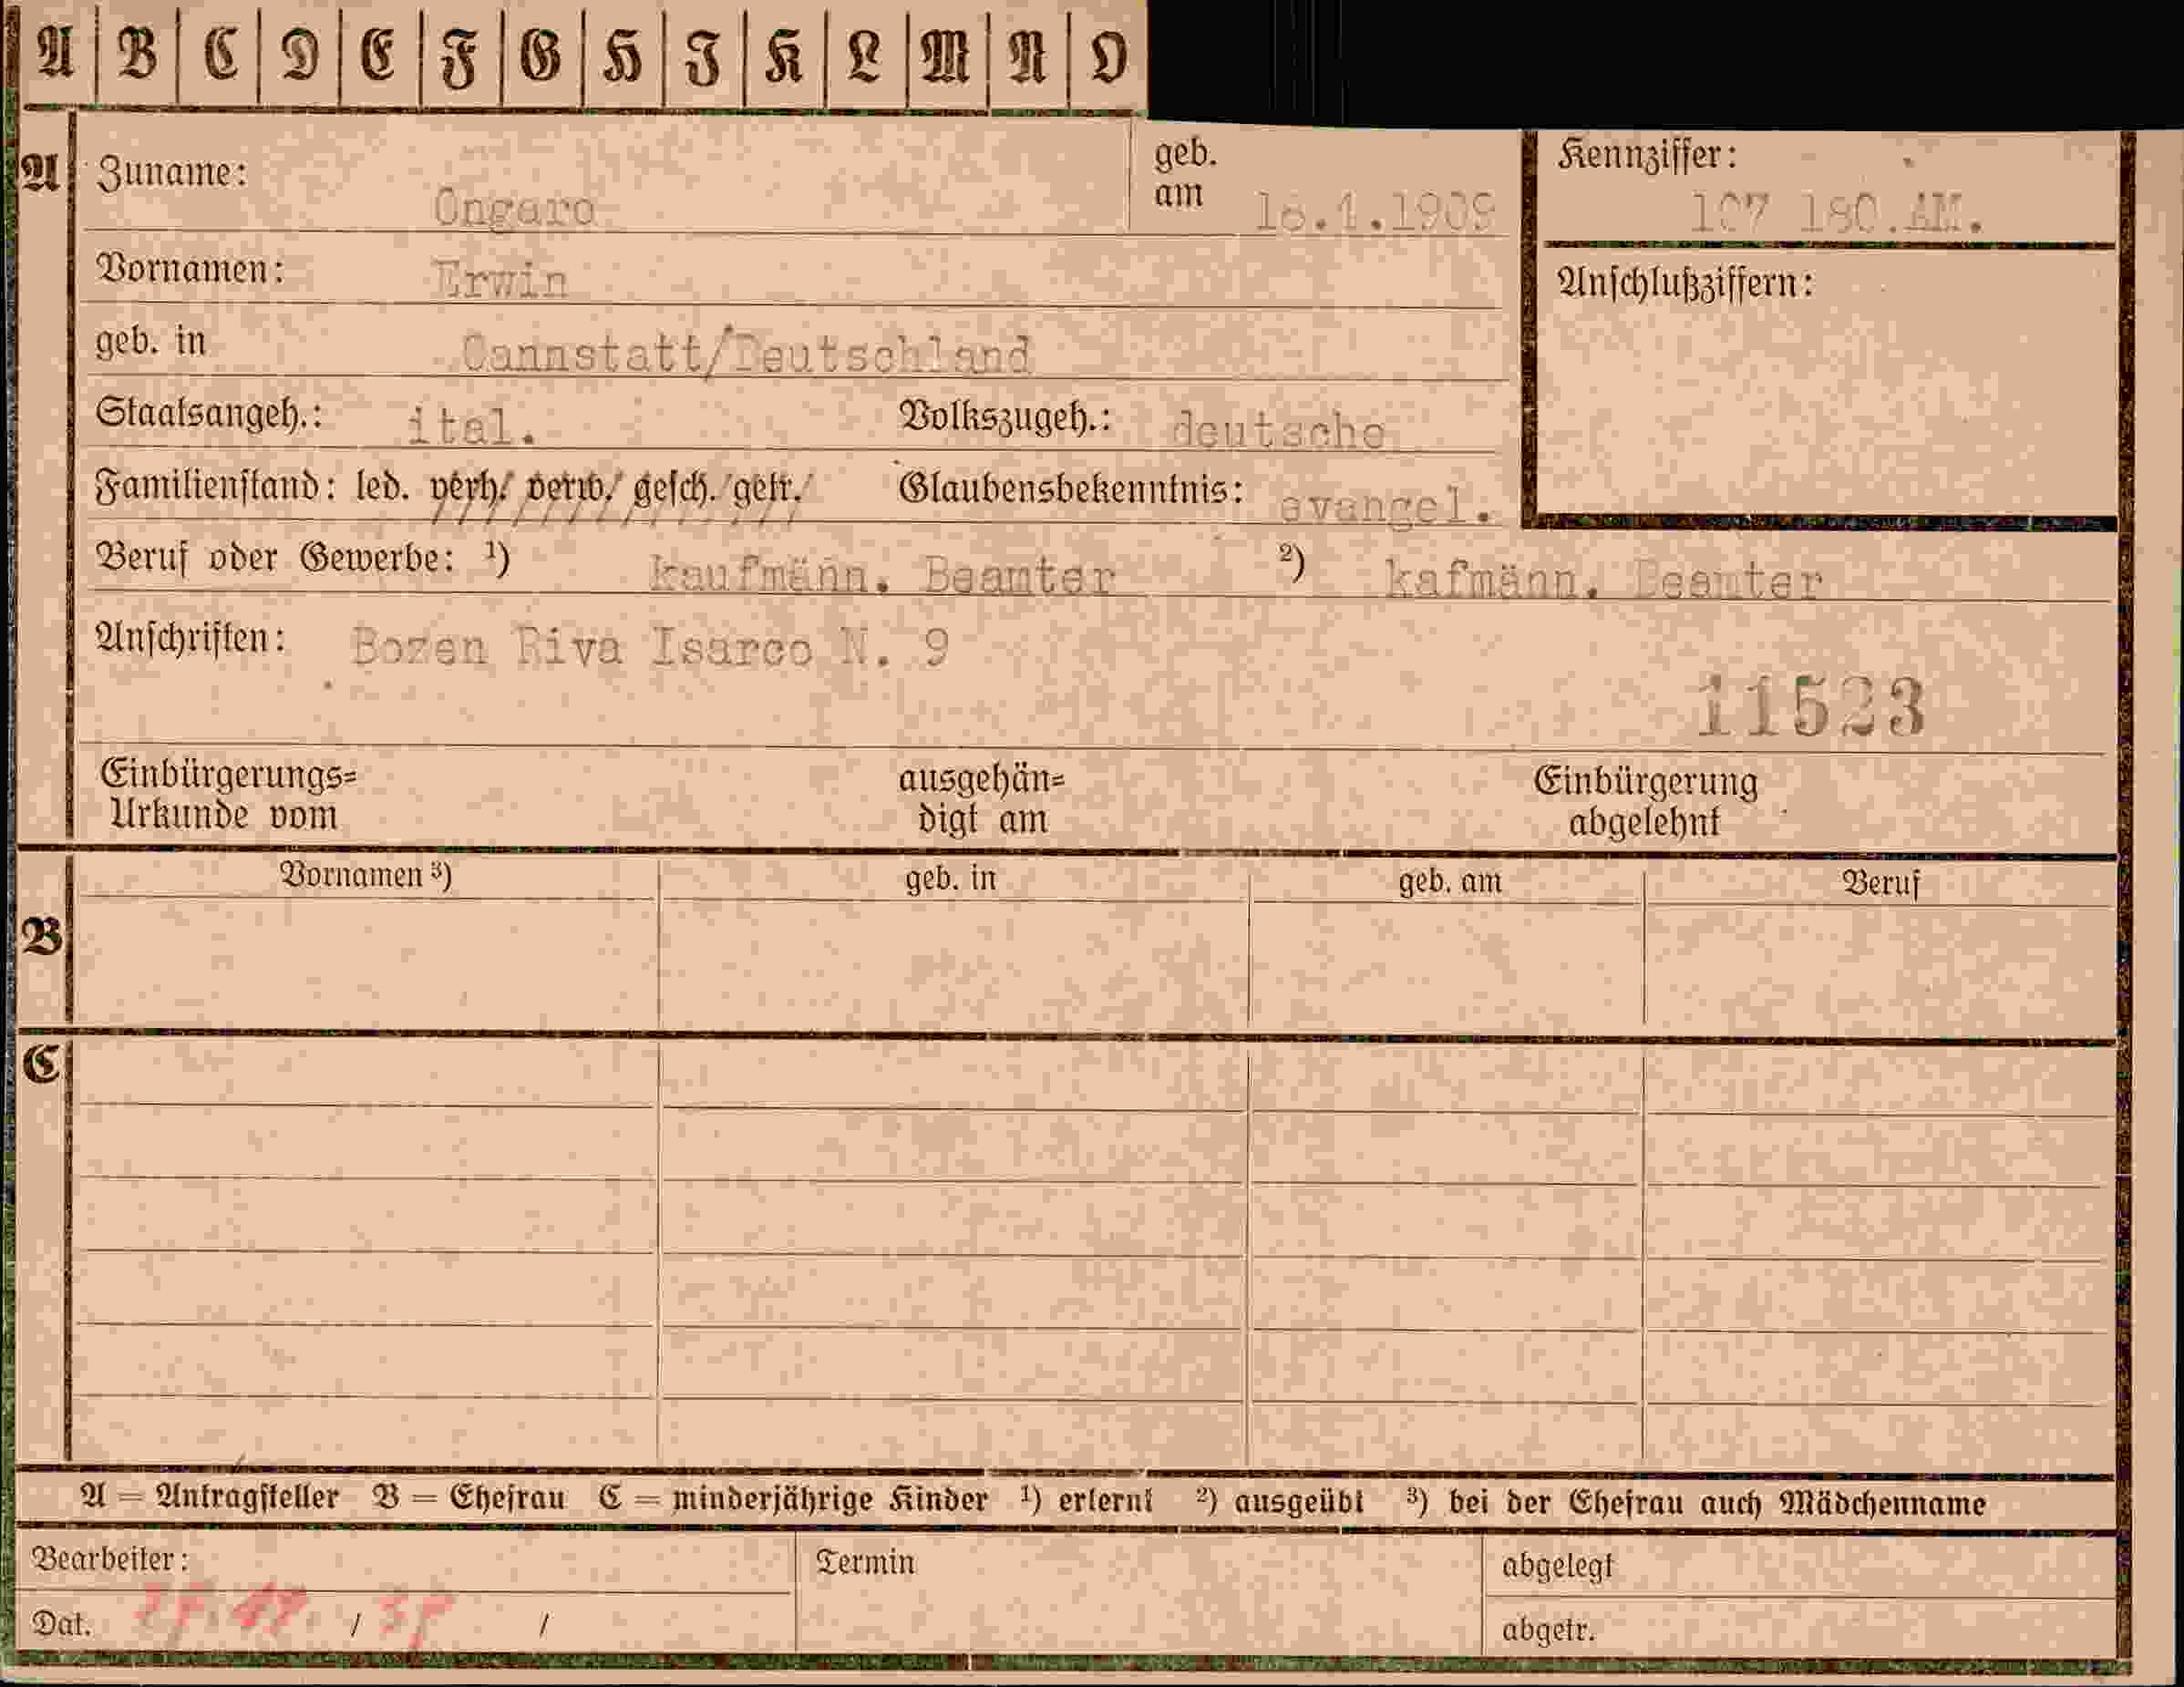 A B C D E F G H I K L M N O
A Zuname: Ongaro geb. am 18.1.1909 Kennziffer: 107 180.AM.
Vornamen: Erwin Anschlußziffern:
geb. in Cannstatt/Deutschland
Staatsangeh.: ital. Volkszugeh.: deutsche
Familienstand: led. verh. verw. gesch. getr. Glaubensbekenntnis: evangel.
Beruf oder Gewerbe: ¹) kaufmänn. Beamter ²) kafmänn. Beamter
Anschriften: Bozen Riva Isarco N. 9
11523
Einbürgerungs= ausgehän= Einbürgerung
Urkunde vom digt am abgelehnt
Vornamen ³) geb. in geb. am Beruf
B
C
A = Antragsteller B = Ehefrau C = minderjährige Kinder ¹) erlernt ²) ausgeübt ³) bei der Ehefrau auch Mädchenname
Bearbeiter: Termin abgelegt
Dat. / / abgetr.